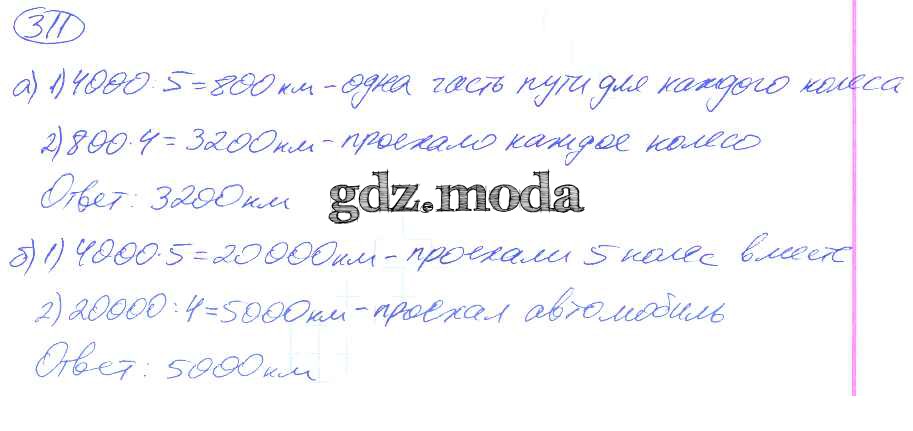 311
а) 1) 4000 : 5 = 800 км – одна часть пути для каждого колеса
2) 800 · 4 = 3200 км – проехало каждое колесо
Ответ: 3200 км
gdz.moda
б) 1) 4000 · 5 = 20000 км – проехали 5 колес вместе
2) 20000 : 4 = 5000 км – проехал автомобиль
Ответ: 5000 км